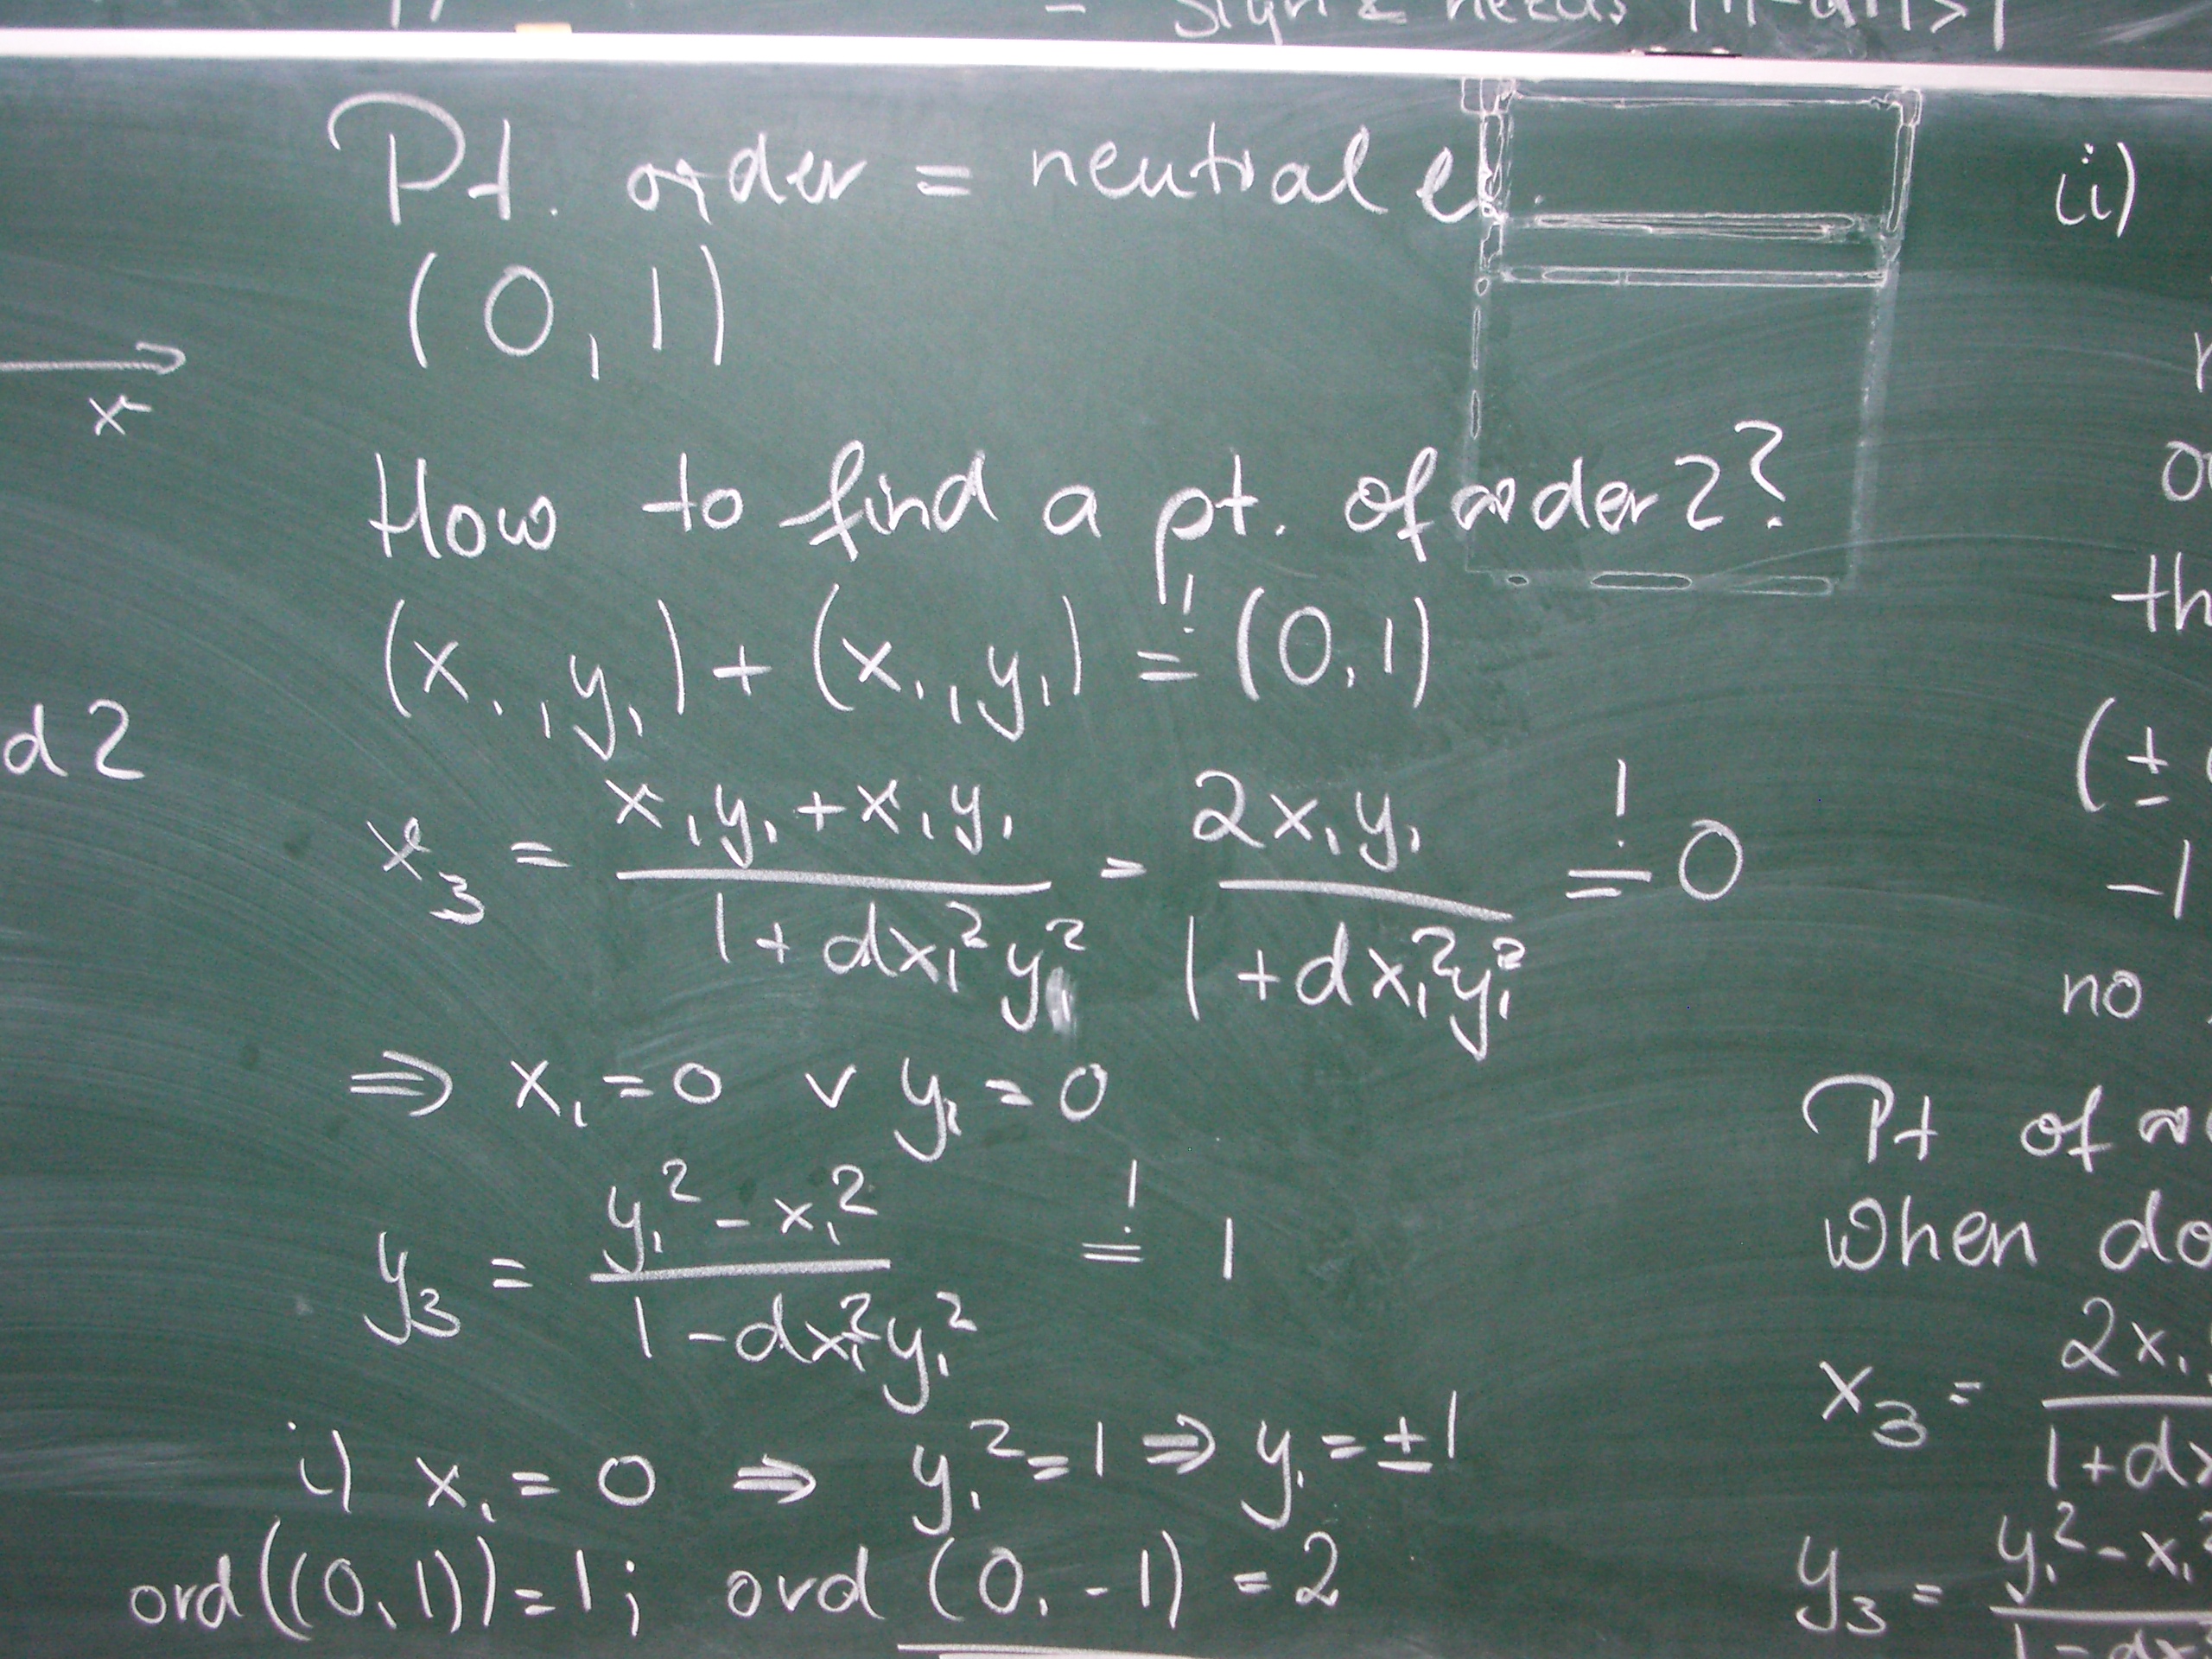 sign 2 needs
Pt. order = neutral el.
(0,1)
x
How to find a pt. of order 2?
(x₁,y₁) + (x₁,y₁) =! (0,1)
d 2
x₃ = (x₁y₁ + x₁y₁)/(1 + dx₁²y₁²) = 2x₁y₁/(1 + dx₁²y₁²) =! 0
⇒ x₁ = 0 ∨ y₁ = 0
y₃ = (y₁² - x₁²)/(1 - dx₁²y₁²) =! 1
i) x₁ = 0 ⇒ y₁² = 1 ⇒ y₁ = ±1
ord((0,1)) = 1; ord (0,-1) = 2
ii)
th
(±
-1
no
Pt of
When do
x₃ = 2x₁ / 1+dx
y₃ = y₁² - x₁² / 1-dx